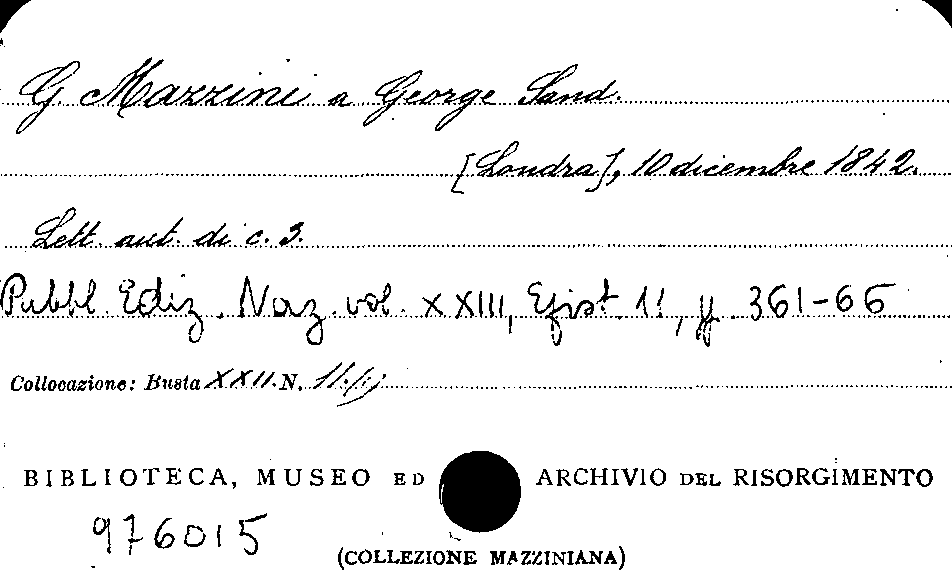 G. Mazzini a George Sand.
[Londra], 10 dicembre 1842.
Lett. aut. di c. 3.
Pubbl. Ediz. Naz. vol. XXIII, Epist. 11, pp. 361-66
Collocazione: Busta XXII. N.
BIBLIOTECA, MUSEO ED ARCHIVIO DEL RISORGIMENTO
976015
(COLLEZIONE MAZZINIANA)